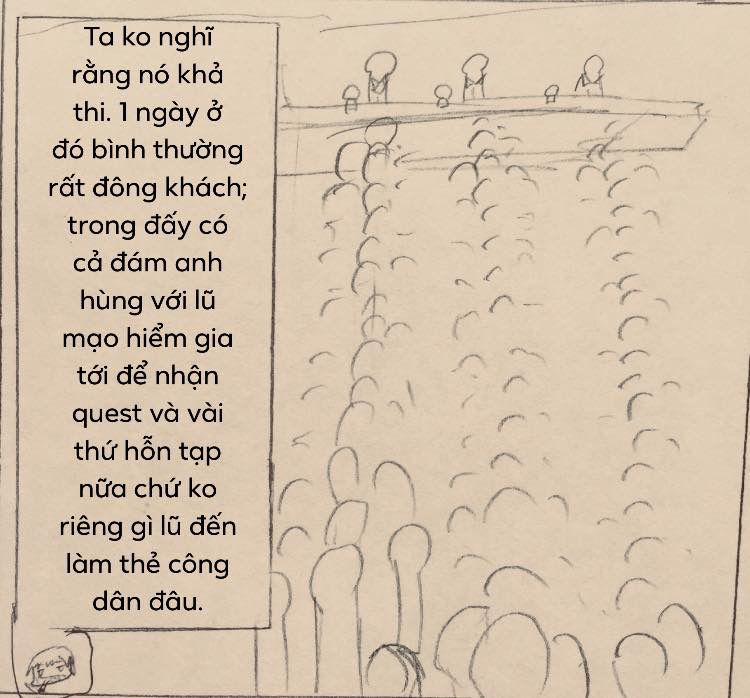 Ta ko nghĩ
rằng nó khả
thi. 1 ngày ở
đó bình thường
rất đông khách;
trong đấy có
cả đám anh
hùng với lũ
mạo hiểm gia
tới để nhận
quest và vài
thứ hỗn tạp
nữa chứ ko
riêng gì lũ đến
làm thẻ công
dân đâu.